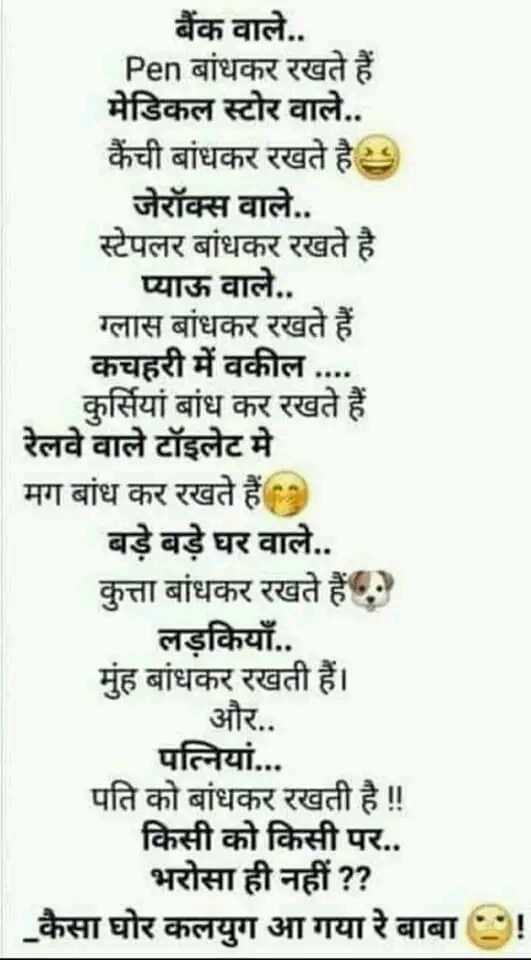 बैंक वाले..
Pen बांधकर रखते हैं
मेडिकल स्टोर वाले..
कैंची बांधकर रखते है😆
जेरॉक्स वाले..
स्टेपलर बांधकर रखते है
प्याऊ वाले..
ग्लास बांधकर रखते हैं
कचहरी में वकील ....
कुर्सियां बांध कर रखते हैं
रेलवे वाले टॉइलेट मे
मग बांध कर रखते हैं🤭
बड़े बड़े घर वाले..
कुत्ता बांधकर रखते हैं🐶
लड़कियाँ..
मुंह बांधकर रखती हैं।
और..
पत्नियां...
पति को बांधकर रखती है !!
किसी को किसी पर..
भरोसा ही नहीं ??
_कैसा घोर कलयुग आ गया रे बाबा 🙄!